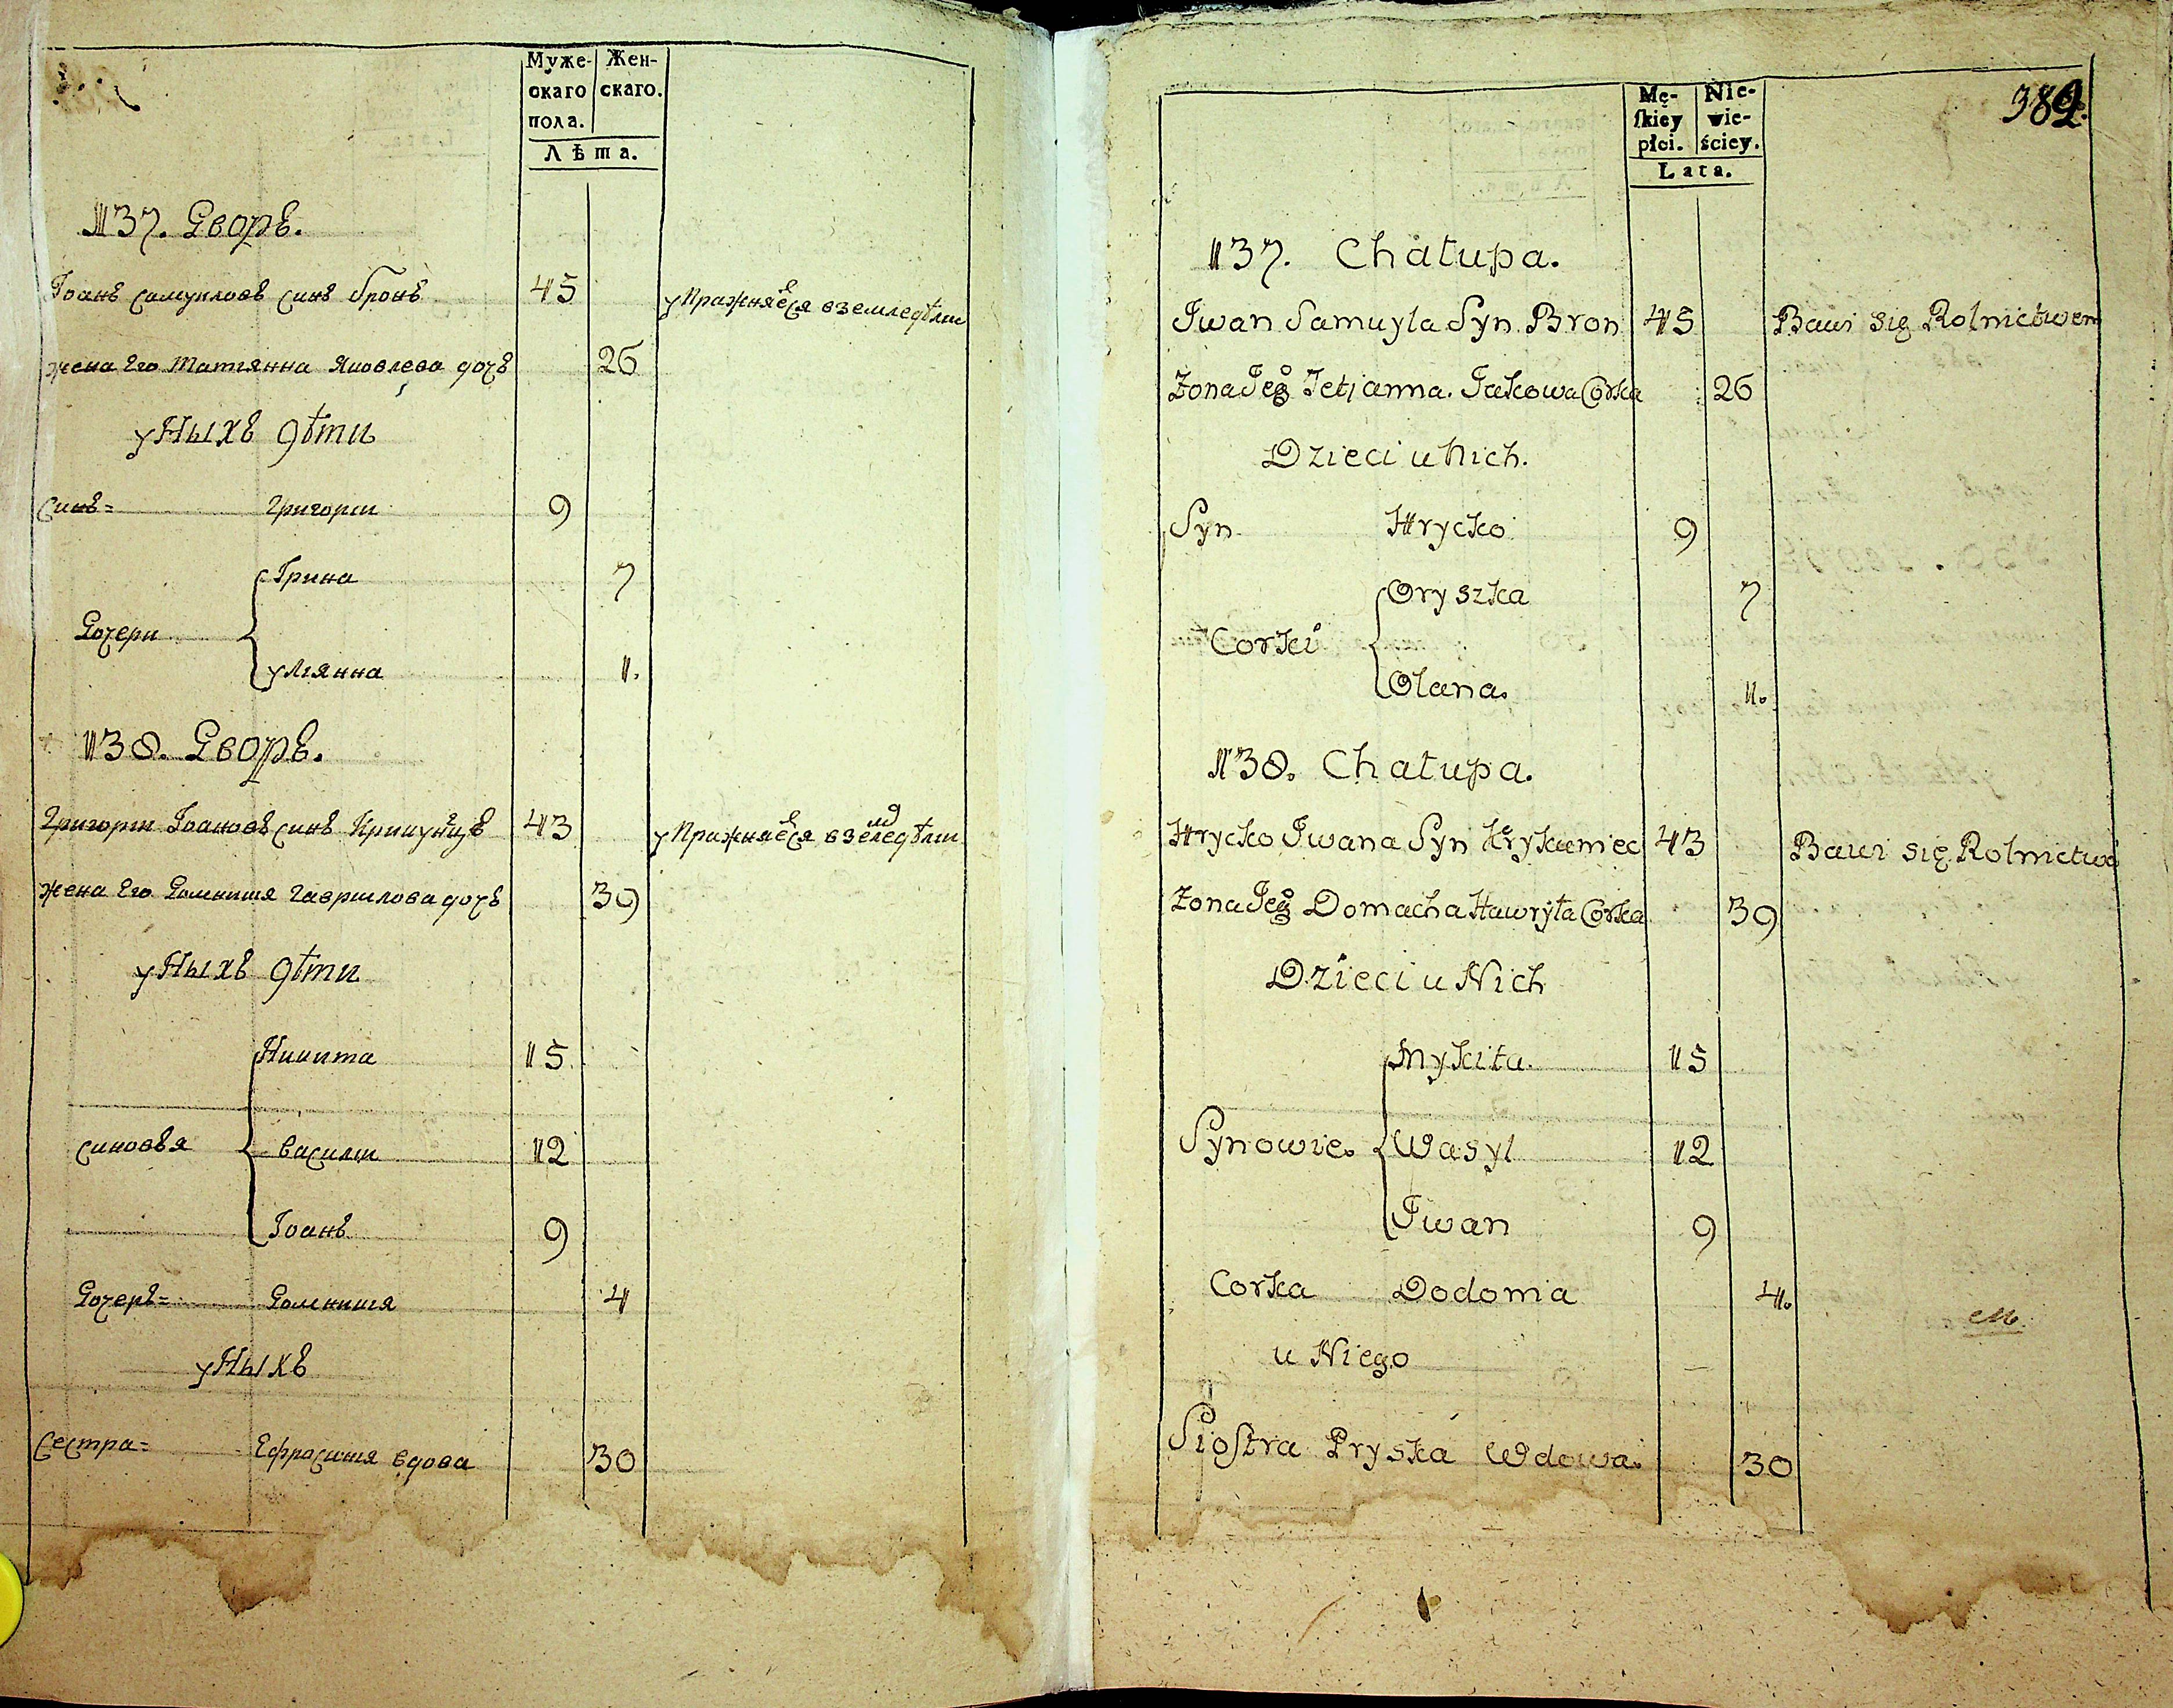 Муже-
скаго
пола.
Жен-
скаго.
Лѣта.
137. Дворъ.
Іоанъ Самуиловъ синъ Бронъ 45 упражняеся вземледѣлии
жена Его Татіянна Яковлева дочъ 26
уНыхъ дѣти
Синъ= Григории 9
Дочери
Ірина 7
улиянна 1.
138. Дворъ.
Григории Іоановъ синъ 43 упражняеся вземледѣлии
жена Его Домникия Гавриилова дочъ 39
уНыхъ дѣти
Синовья
Никита 15
Василии 12
Іоанъ 9
Дочеръ= Домникия 4
уНыхъ
Сестра= Ефросиния вдова 30
382.
Mę-
skiey
płci.
Nie-
wie-
ściey.
Lata.
137. Chałupa.
Iwan Samuyla Syn Bron 45 Bawi się Rolnictwem
Żona Jego Tetjanna. Jakowa Corka 26
Dzieci u Nich.
Syn Hrycko 9
Corki
Oryszka 7
Olana. 1.
138. Chałupa.
Hrycko Iwana Syn 43 Bawi się Rolnictwe
Żona Jego Domacha Hawryła Corka 39
Dzieci u Nich
Synowie.
Mykita. 15
Wasyl 12
Iwan 9
Corka Dodomia 4.
u Niego
Siostra Pryska Wdowa. 30